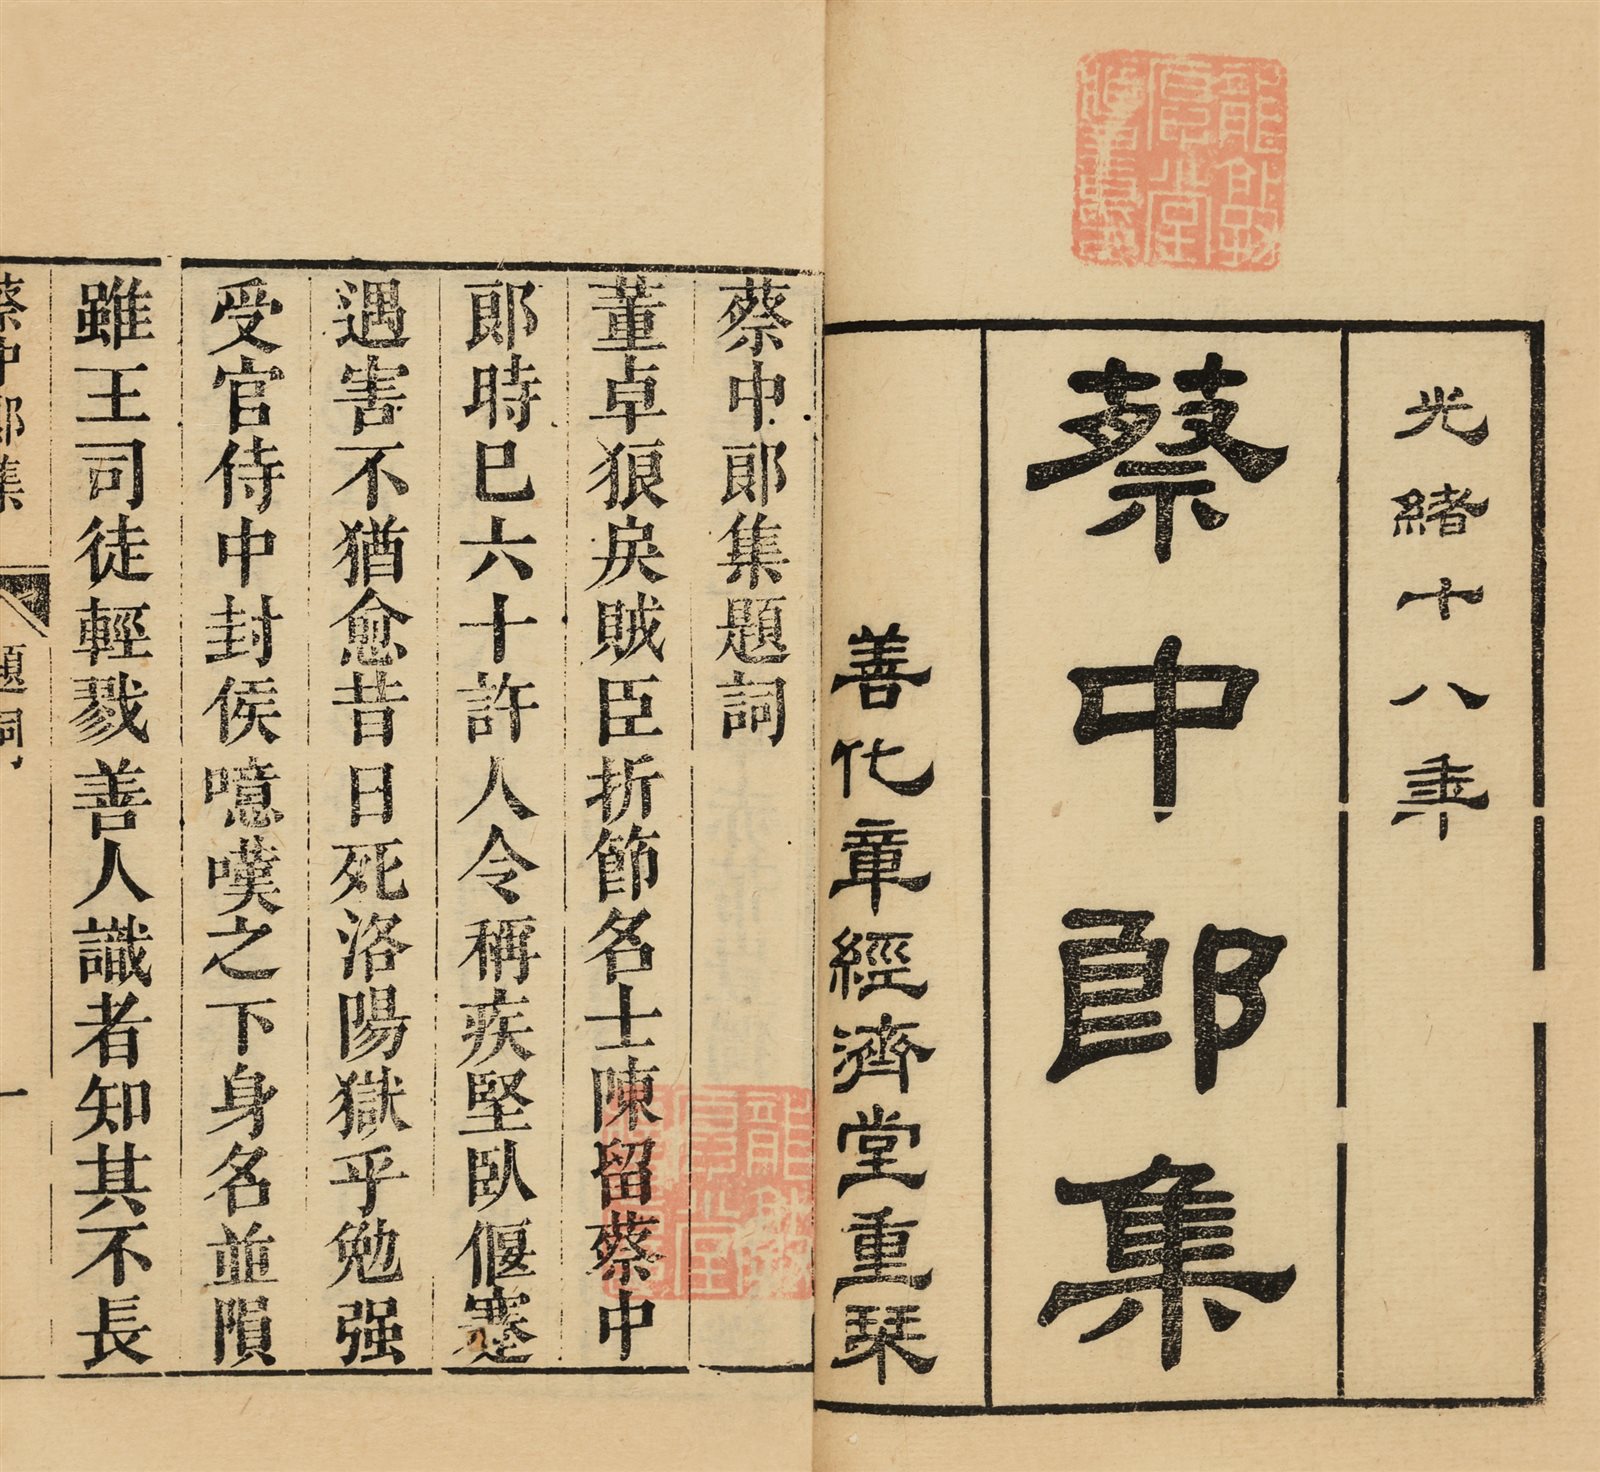 光緒十八年
蔡中郎集
善化章經濟堂重栞
蔡中郎集題詞
董卓狼戾賊臣折節名士陳留蔡中
郎時巳六十許人令稱疾堅臥偃蹇
遇害不猶愈昔日死洛陽獄乎勉强
受官侍中封侯噫嘆之下身名並隕
雖王司徒輕戮善人識者知其不長
蔡中郎集
題詞
一